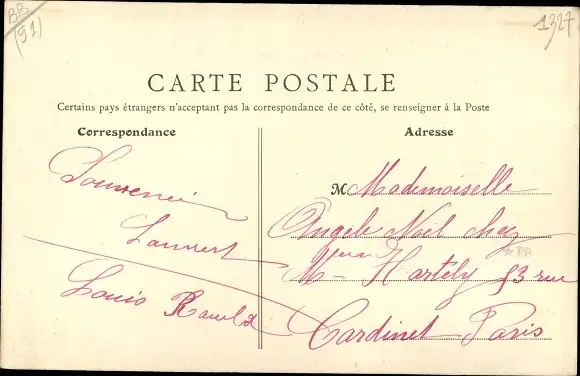 BB
(91)
1327
CARTE POSTALE
Certains pays étrangers n'acceptant pas la correspondance de ce côté, se renseigner à la Poste
Correspondance
Souvenir
Laurent
Louis
Adresse
M Mademoiselle
Angele Noël chez
M Hartély 53 rue
Cardinet Paris